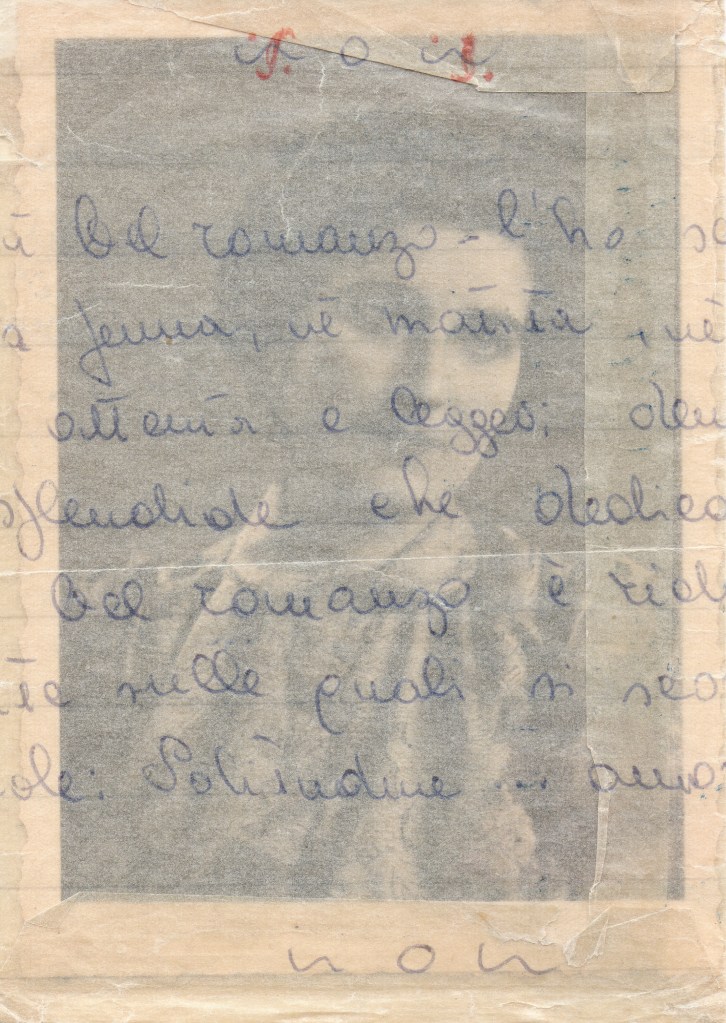 i f. o i f.
ù bel romanzo - l'ho sc
a penna, nè matita, nè
ottenuta e leggeo; den
splendide che dedico
bel romanzo è rid
te sulle quali si sco
ole: Solitudine ... amo
non